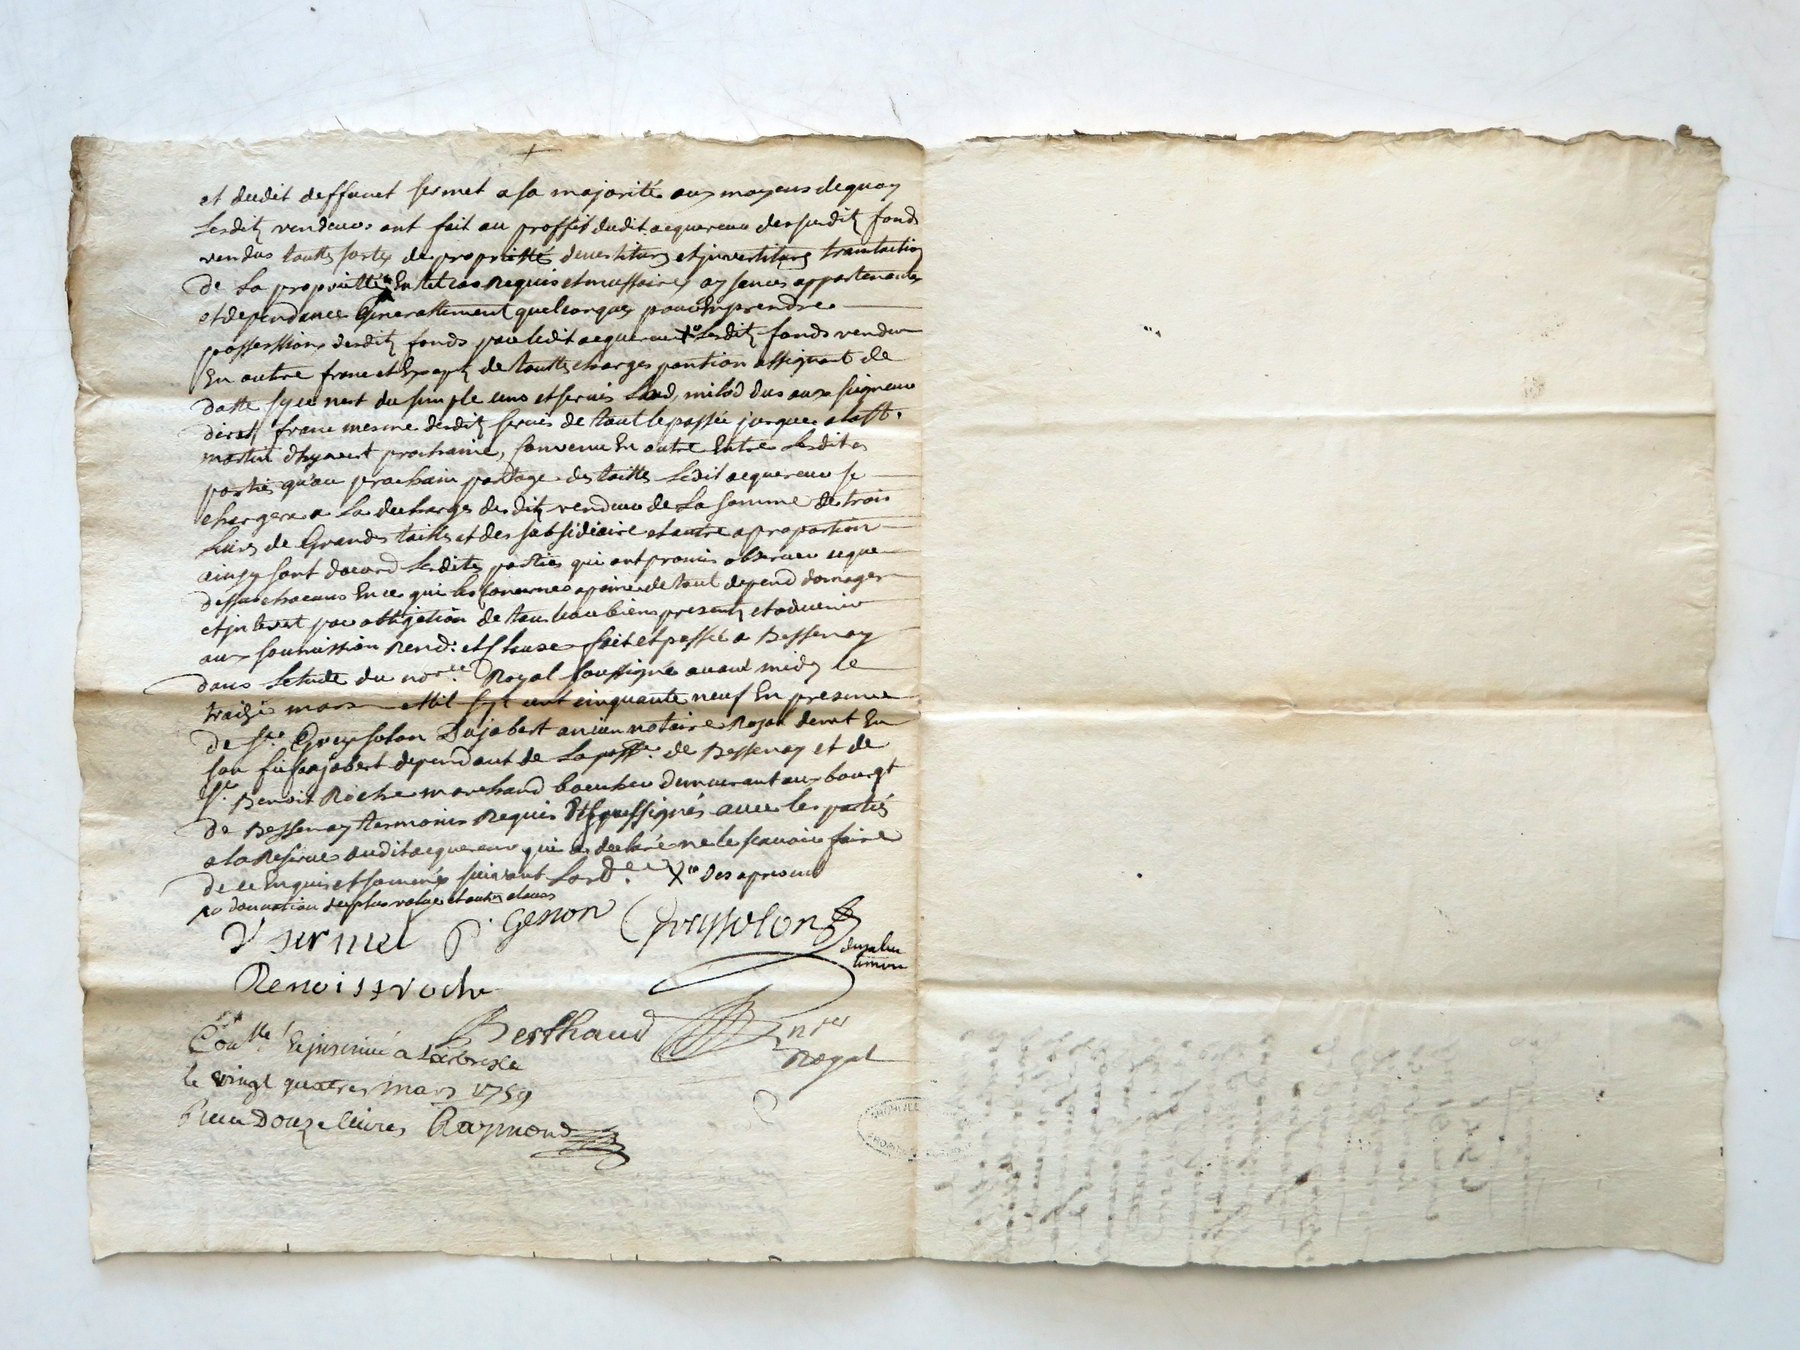 et dudit deffunct sermet a sa majorité aux moyens dequoy
lesditz vendeurs ont fait au proffit dudit acquereur des susditz fonds
vendus touttes sortes de propriettés devestiture et jnvestiture translaction
de la proprietté En tel cas Requis et neccessaire aysences appartenantes
et dependances Generallement quelconques pour En prendre
possession desditz fonds par ledit acquereur lesditz fonds vendu
En outre franc et Exempt de touttes charges pantion assignat de
datte sy ce nest du simple cens et servis Laod, milod dus aux seigneur
direct franc mesme desditz servis de tout le passée jusques a la st.
martin dhyvert prochaine, Convenu En outre Entre lesdites
parties qu'au prochain partage des tailles ledit acquereur se
chargera a la decharge desditz vendeur de la somme de trois
livres de Grandes tailles et des subsidiaire et autre a proportion
ainsy sont dacord lesdites parties qui ont promis observer ceque
dessus chacuns En ce qui les Concernes a peine de tout depend domages
et jnterest par obligation de tous leur biens presentz et advenir
aux soumission Rend: et Clause fait et passée a Bessenay
dans letude du nore. Royal soussigné avant midy le
traize mars mil sept cent cinquante neuf En presence
de Sr. Greysolon Dujabert ancien notaire Royal demt En
son fief dujabert dependant de la psse. de Bessenay et de
Sr. Benoit Roche marchand boucher demeurant aux bourgt
de Bessenay tesmoins Requis Et soussignés avec les partiés
a la Reserve dudit acquereur qui a declaré ne le scavoir faire
de ce Enquis et sommés suivant Lord.
donnation de plus value et autre clauses
sermet Genon Greysolon
temoin
Benoist roche
Berthaud nre
Royal
Conllé et jnsinué a Larbresle
le vingt quatres mars 1759
Reçu Douze livres Raymond